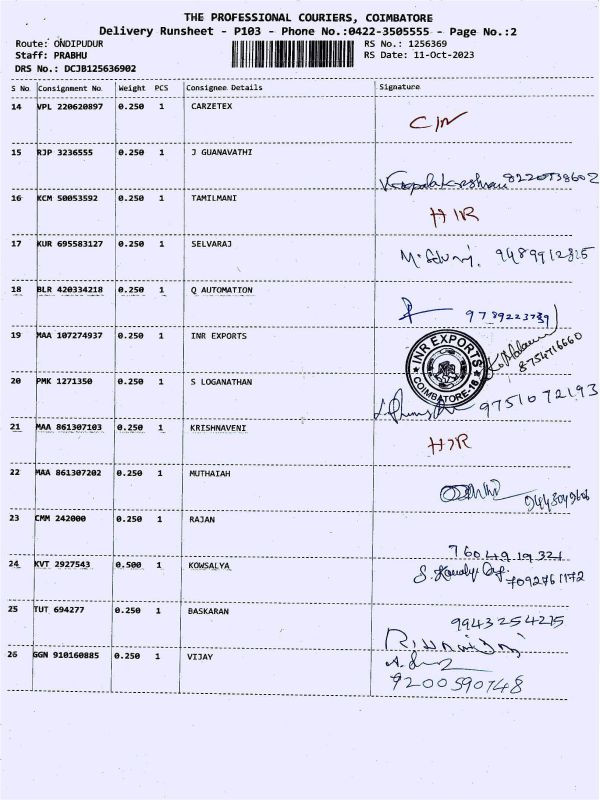 THE PROFESSIONAL COURIERS, COIMBATORE
Delivery Runsheet - P103 - Phone No.:0422-3505555 - Page No.:2
Route: ONDIPUDUR RS No.: 1256369
Staff: PRABHU RS Date: 11-Oct-2023
DRS No.: DCJB125636902
S No Consignment No Weight PCS Consignee Details Signature
14 VPL 220620897 0.250 1 CARZETEX
15 RJP 3236555 0.250 1 J GUANAVATHI
16 KCM 50053592 0.250 1 TAMILMANI H/R
17 KUR 695583127 0.250 1 SELVARAJ 9489912815
18 BLR 420334218 0.250 1 Q AUTOMATION 9789223739
19 MAA 107274937 0.250 1 INR EXPORTS INR EXPORTS COIMBATORE-16 8754716660
20 PMK 1271350 0.250 1 S LOGANATHAN 9751072193
21 MAA 861307103 0.250 1 KRISHNAVENI H/R
22 MAA 861307202 0.250 1 MUTHAIAH
23 CMM 242000 0.250 1 RAJAN 7604919321
24 KVT 2927543 0.500 1 KOWSALYA 7092761172
25 TUT 694277 0.250 1 BASKARAN 9943254215
26 GGN 910160885 0.250 1 VIJAY 9200590748